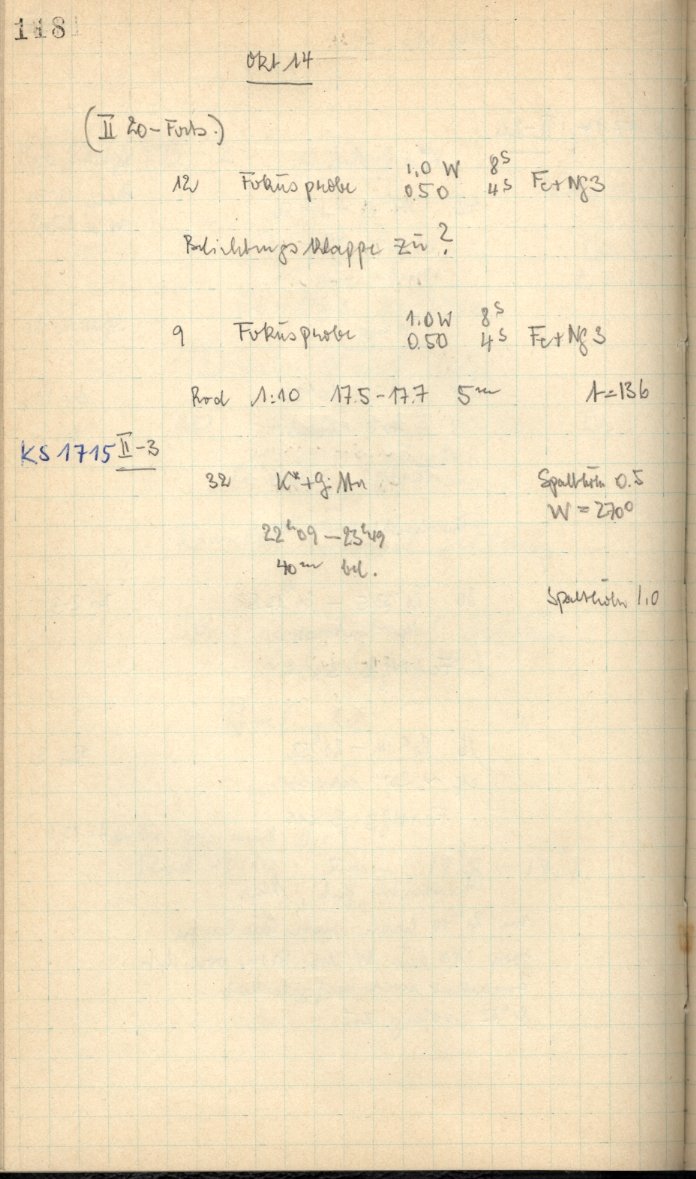 118
Okt 14
(II 20-Forts.)
12 Fokusprobe 1.0 W 8s Fe+Ng3
0.50 4s
Belichtungsklappe zu?
9 Fokusprobe 1.0 W 8s Fe+Ng3
0.50 4s
Rod 1:10 17.5-17.7 5m t=136
KS 1715 II-3
32 Spalthöhe 0.5
W=270°
22h09-23h49
40m bel.
Spalthöhe 1.0